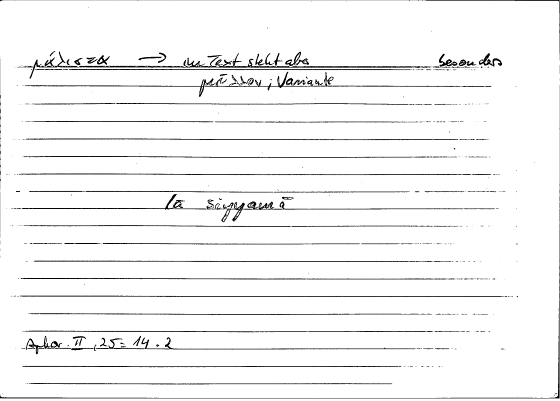 μάλιστα → im Text steht aber besonders
μᾶλλον; Variante
lā siyyamā
Aphor. II, 25 = 14. 2